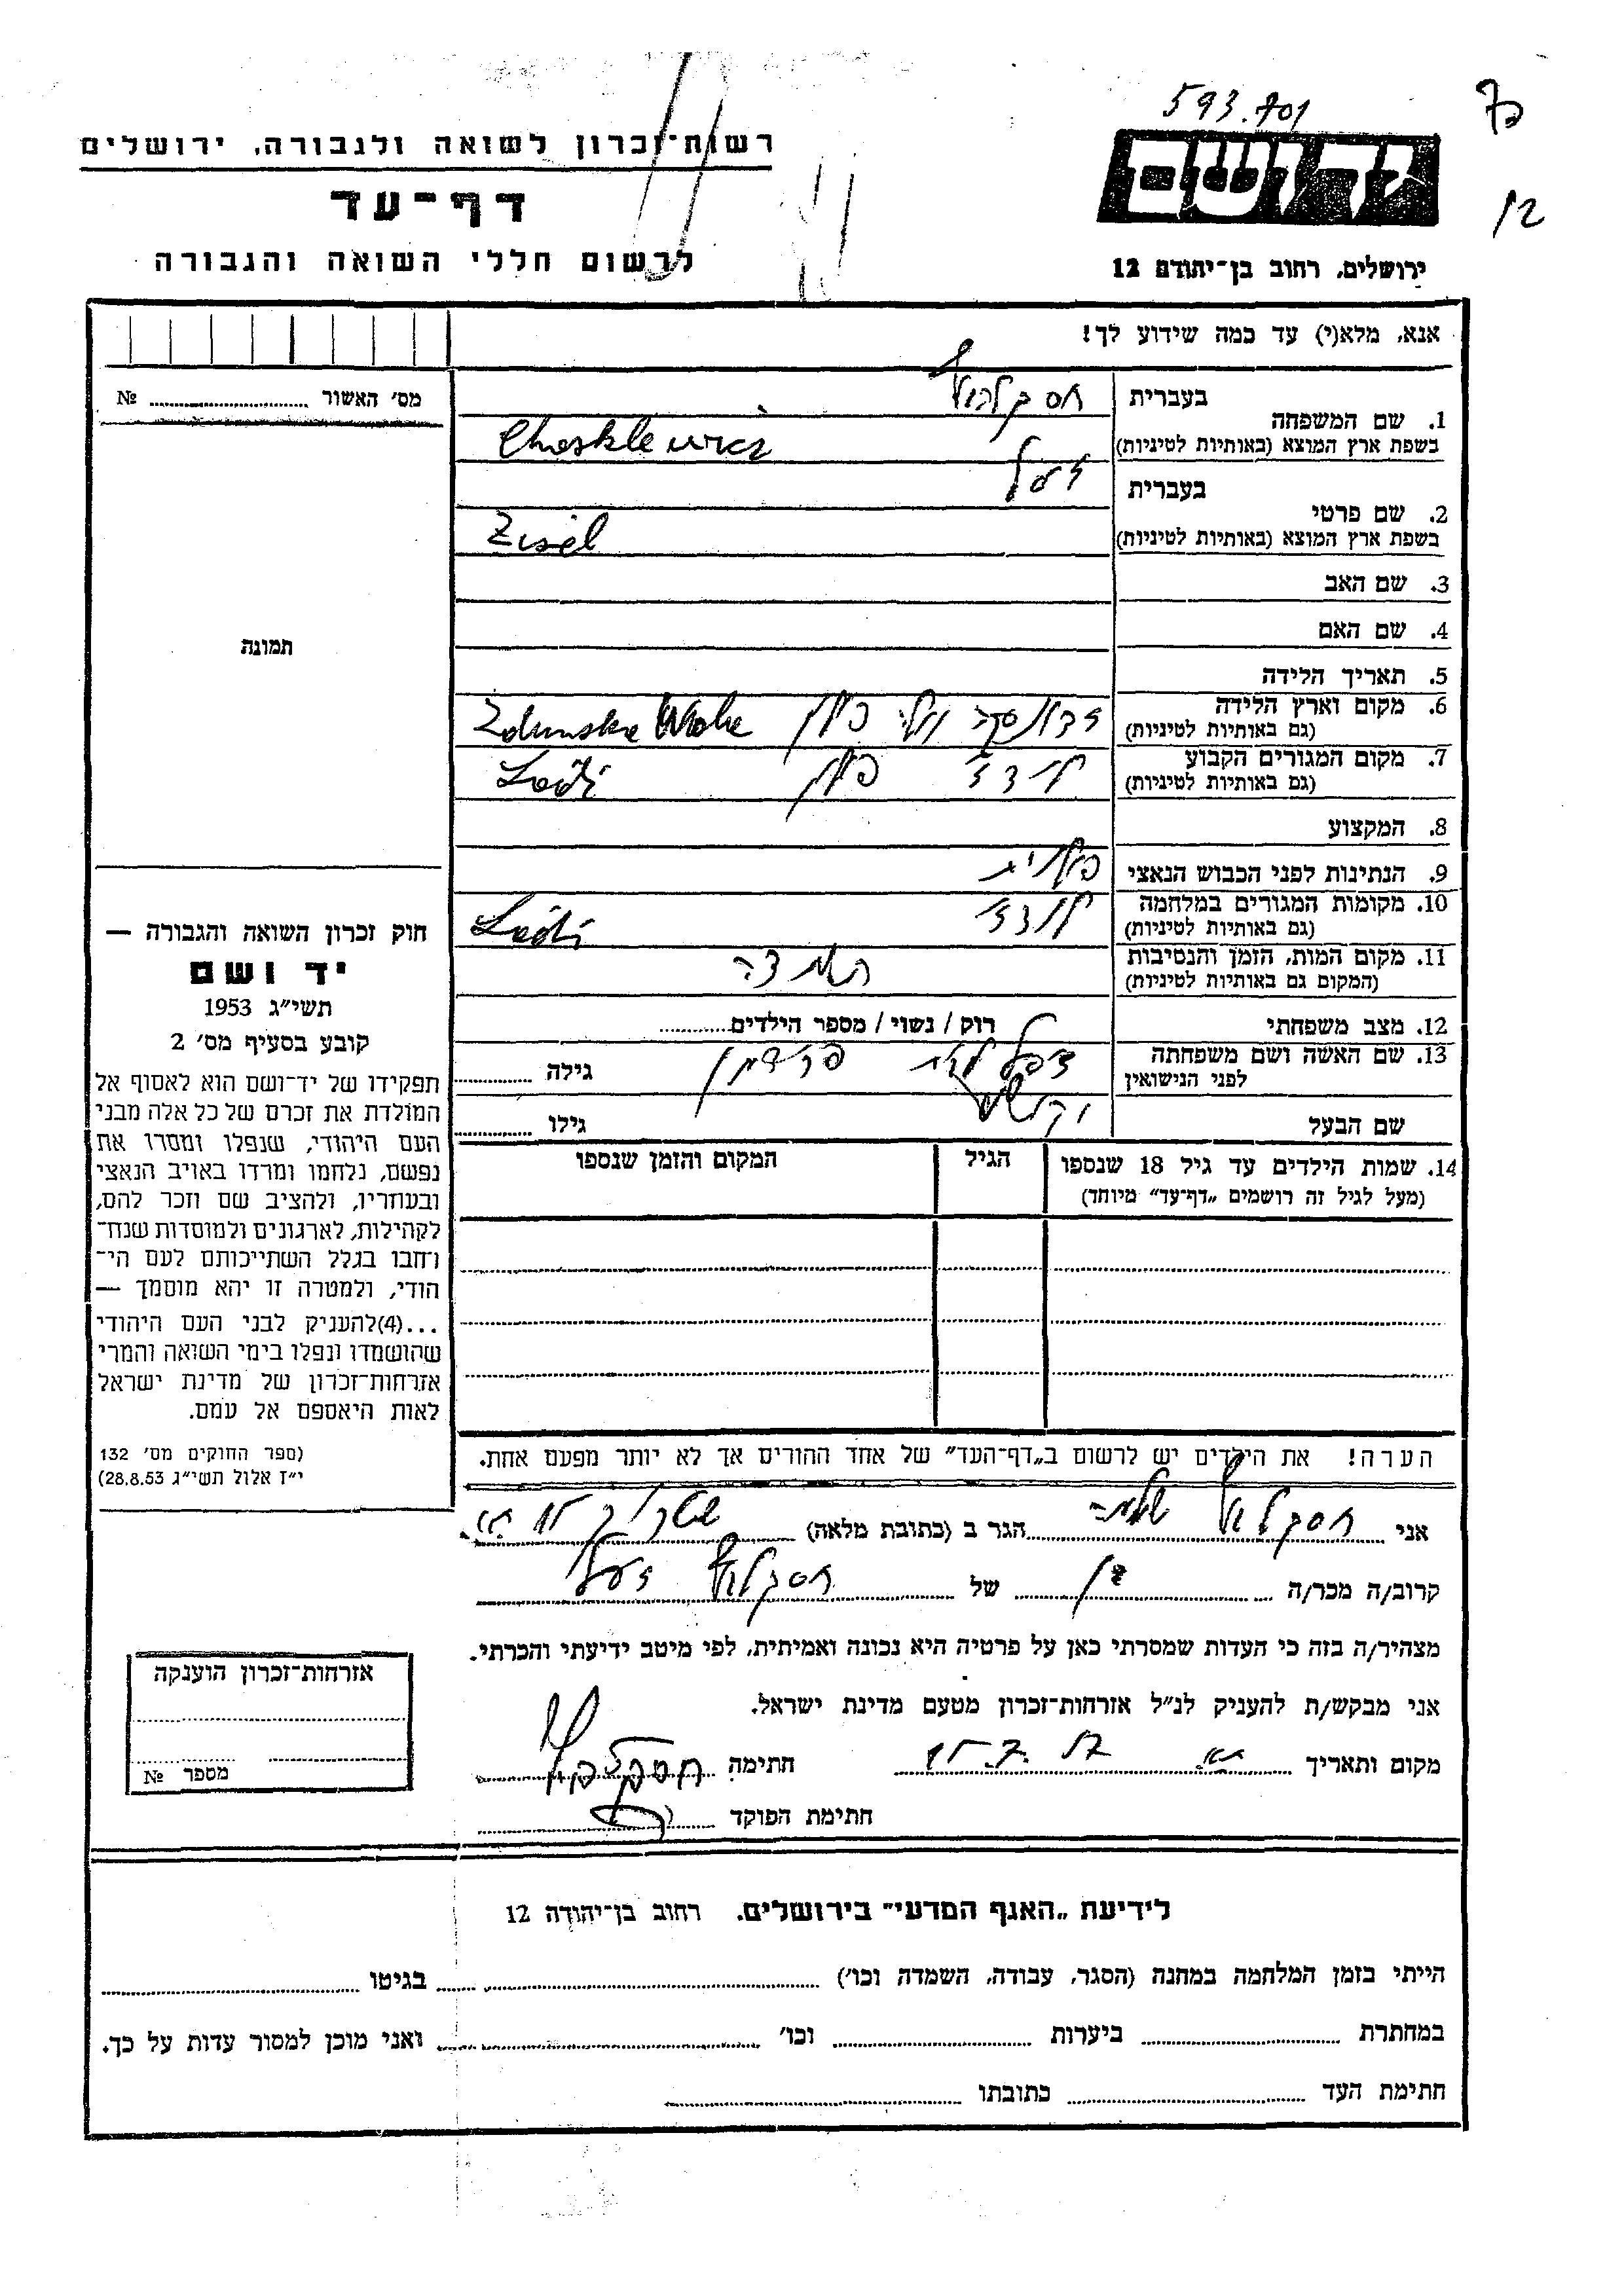 593.701
רשות־זכרון לשואה ולגבורה, ירושלים
דף־עד
לרשום חללי השואה והגבורה
יד ושם
ירושלים, רחוב בן־יהודה 12
אנא, מלא(י) עד כמה שידוע לך!
מס׳ האשור ........ №
תמונה
1. שם המשפחה בעברית
בשפת ארץ המוצא (באותיות לטיניות) Chesklewicz
2. שם פרטי בעברית זיסל
בשפת ארץ המוצא (באותיות לטיניות) Zisel
3. שם האב
4. שם האם
5. תאריך הלידה
6. מקום וארץ הלידה (גם באותיות לטיניות) זדונסקה וולה פולין Zdunska Wola
7. מקום המגורים הקבוע (גם באותיות לטיניות) לודז׳ פולין Łódź
8. המקצוע
9. הנתינות לפני הכבוש הנאצי פולנית
10. מקומות המגורים במלחמה (גם באותיות לטיניות) לודז׳ Łódź
11. מקום המות, הזמן והנסיבות (המקום גם באותיות לטיניות) השמדה
12. מצב משפחתי רוק / נשוי / מספר הילדים
13. שם האשה ושם משפחתה לפני הנישואין פרידמן גילה
שם הבעל גילו
14. שמות הילדים עד גיל 18 שנספו הגיל המקום והזמן שנספו
(מעל לגיל זה רושמים „דף־עד״ מיוחד)
חוק זכרון השואה והגבורה —
יד ושם
תשי״ג 1953
קובע בסעיף מס׳ 2
תפקידו של יד־ושם הוא לאסוף אל
המולדת את זכרם של כל אלה מבני
העם היהודי, שנפלו ומסרו את
נפשם, נלחמו ומרדו באויב הנאצי
ובעוזריו, ולהציב שם וזכר להם,
לקהילות, לארגונים ולמוסדות שנח־
רחבו בגלל השתייכותם לעם הי־
הודי, ולמטרה זו יהא מוסמך —
...(4)להעניק לבני העם היהודי
שהושמדו ונפלו בימי השואה והמרי
אזרחות־זכרון של מדינת ישראל
לאות היאספם אל עמם.
(ספר החוקים מס׳ 132
י״ז אלול תשי״ג 28.8.53)
הערה! את הילדים יש לרשום ב„דף־העד״ של אחד ההורים אך לא יותר מפעם אחת.
אני שלמה הגר ב (כתובת מלאה)
קרוב/ה מכר/ה בן של זיסל
מצהיר/ה בזה כי העדות שמסרתי כאן על פרטיה היא נכונה ואמיתית, לפי מיטב ידיעתי והכרתי.
אני מבקש/ת להעניק לנ״ל אזרחות־זכרון מטעם מדינת ישראל.
מקום ותאריך חתימה
חתימת הפוקד
אזרחות־זכרון הוענקה
מספר №
לידיעת „האגף המדעי״ בירושלים, רחוב בן־יהודה 12
הייתי בזמן המלחמה במחנה (הסגר, עבודה, השמדה וכו׳) בגיטו
במחתרת ביערות וכו׳ ואני מוכן למסור עדות על כך.
חתימת העד כתובתו